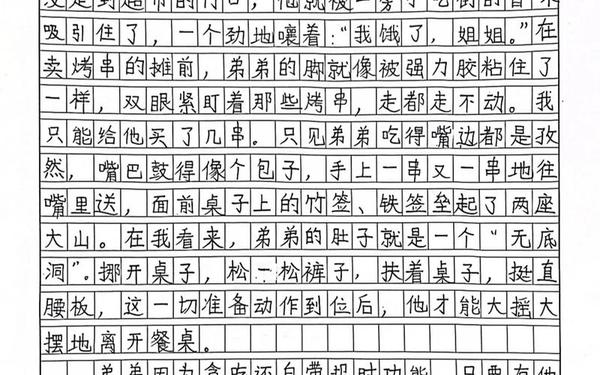 没走到超市的门口，他就被一旁小吃街的香味
吸引住了，一个劲地嚷着：“我饿了，姐姐。”在
卖烤串的摊前，弟弟的脚就像被强力胶粘住了
一样，双眼紧盯着那些烤串，走都走不动。我
只能给他买了几串。只见弟弟吃得嘴边都是孜
然，嘴巴鼓得像个包子，手上一串又一串地往
嘴里送，面前桌子上的竹签、铁签垒起了两座
大山。在我看来，弟弟的肚子就是一个“无底
洞”。挪开桌子，松一松裤子，扶着桌子，挺直
腰板，这一切准备动作到位后，他才能大摇大
摆地离开餐桌。
弟弟因为贪吃还自带超时功能，只要有他